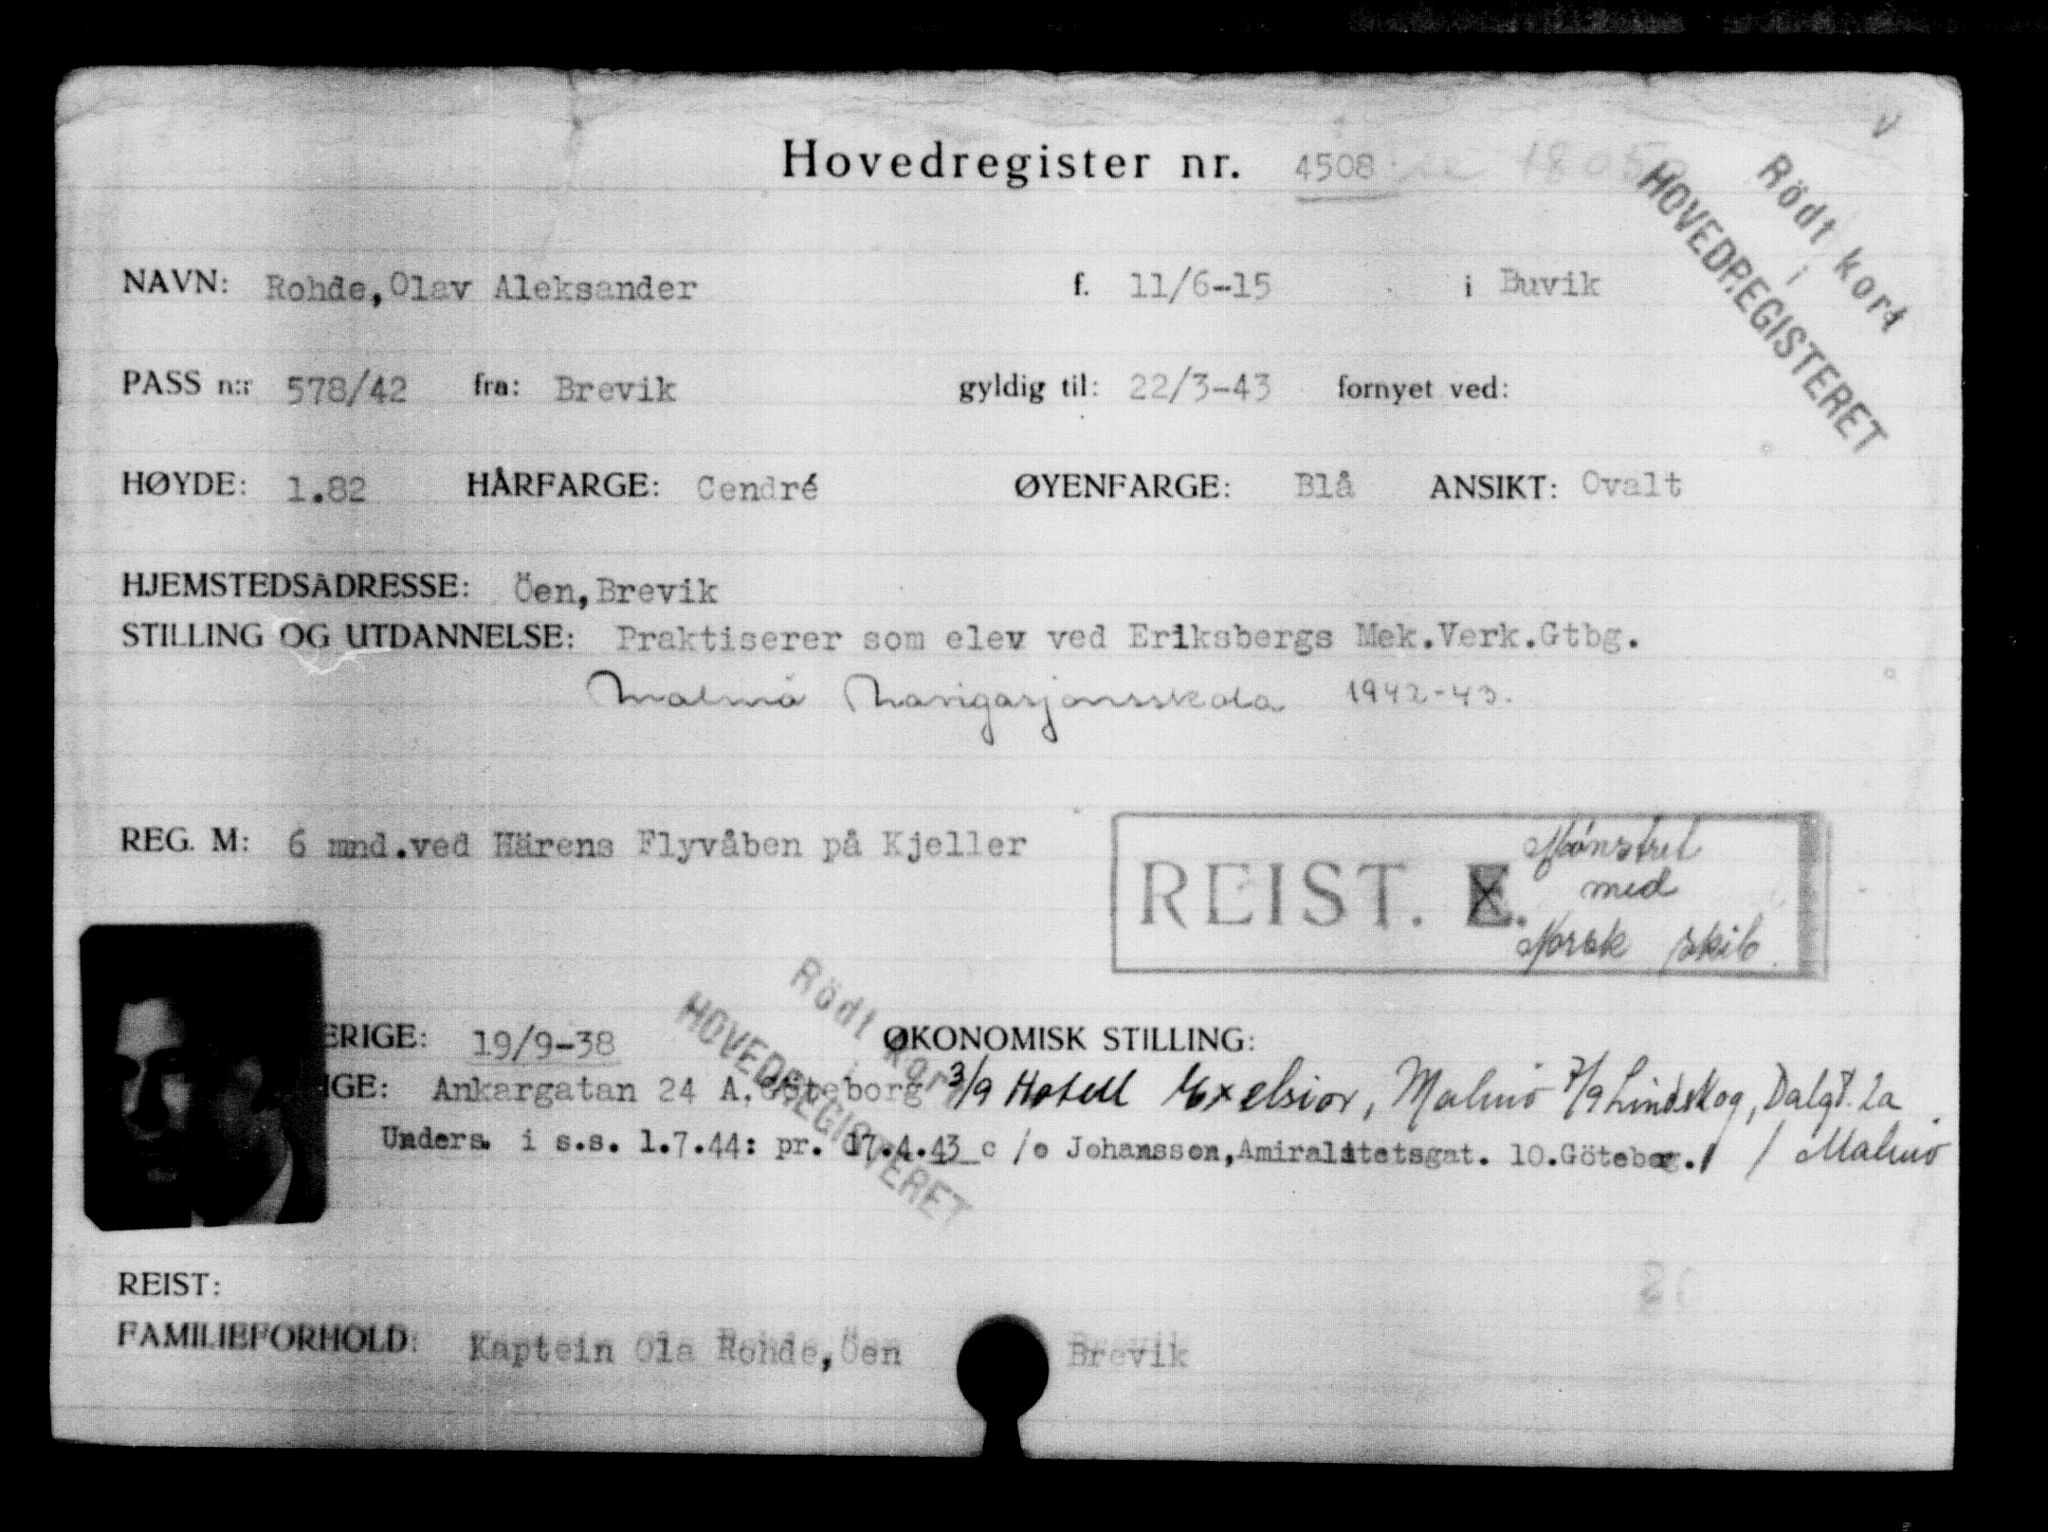 Hovedregister nr. 4508
Rödt kort
i
HOVEDREGISTERET
NAVN: Rohde,Olav Aleksander f. 11/6-15 i Buvik
PASS n:r 578/42 fra: Brevik gyldig til: 22/3-43 fornyet ved:
HØYDE: 1.82 HÅRFARGE: Cendré ØYENFARGE: Blå ANSIKT: Ovalt
HJEMSTEDSADRESSE: Öen,Brevik
STILLING OG UTDANNELSE: Praktiserer som elev ved Eriksbergs Mek.Verk.Gtbg.
Malmö Navigasjonsskola 1942-43.
REG. M: 6 mnd.ved Härens Flyvåben på Kjeller
REIST. E. Mønstret
med
Norsk skib.
Rödt kort
i
HOVEDREGISTERET
ERIGE: 19/9-38 ØKONOMISK STILLING:
IGE: Ankargatan 24 A,Göteborg 3/9 Hotell Exelsior, Malmö 7/9 Lindskog, Dalgt. 2a
Unders. i s.s. 1.7.44: pr. 17.4.43 c/o Johansson,Amiralitetsgat. 10.Göteborg. / Malmö
REIST:
FAMILIEFORHOLD: Kaptein Ola Rohde,Öen Brevik